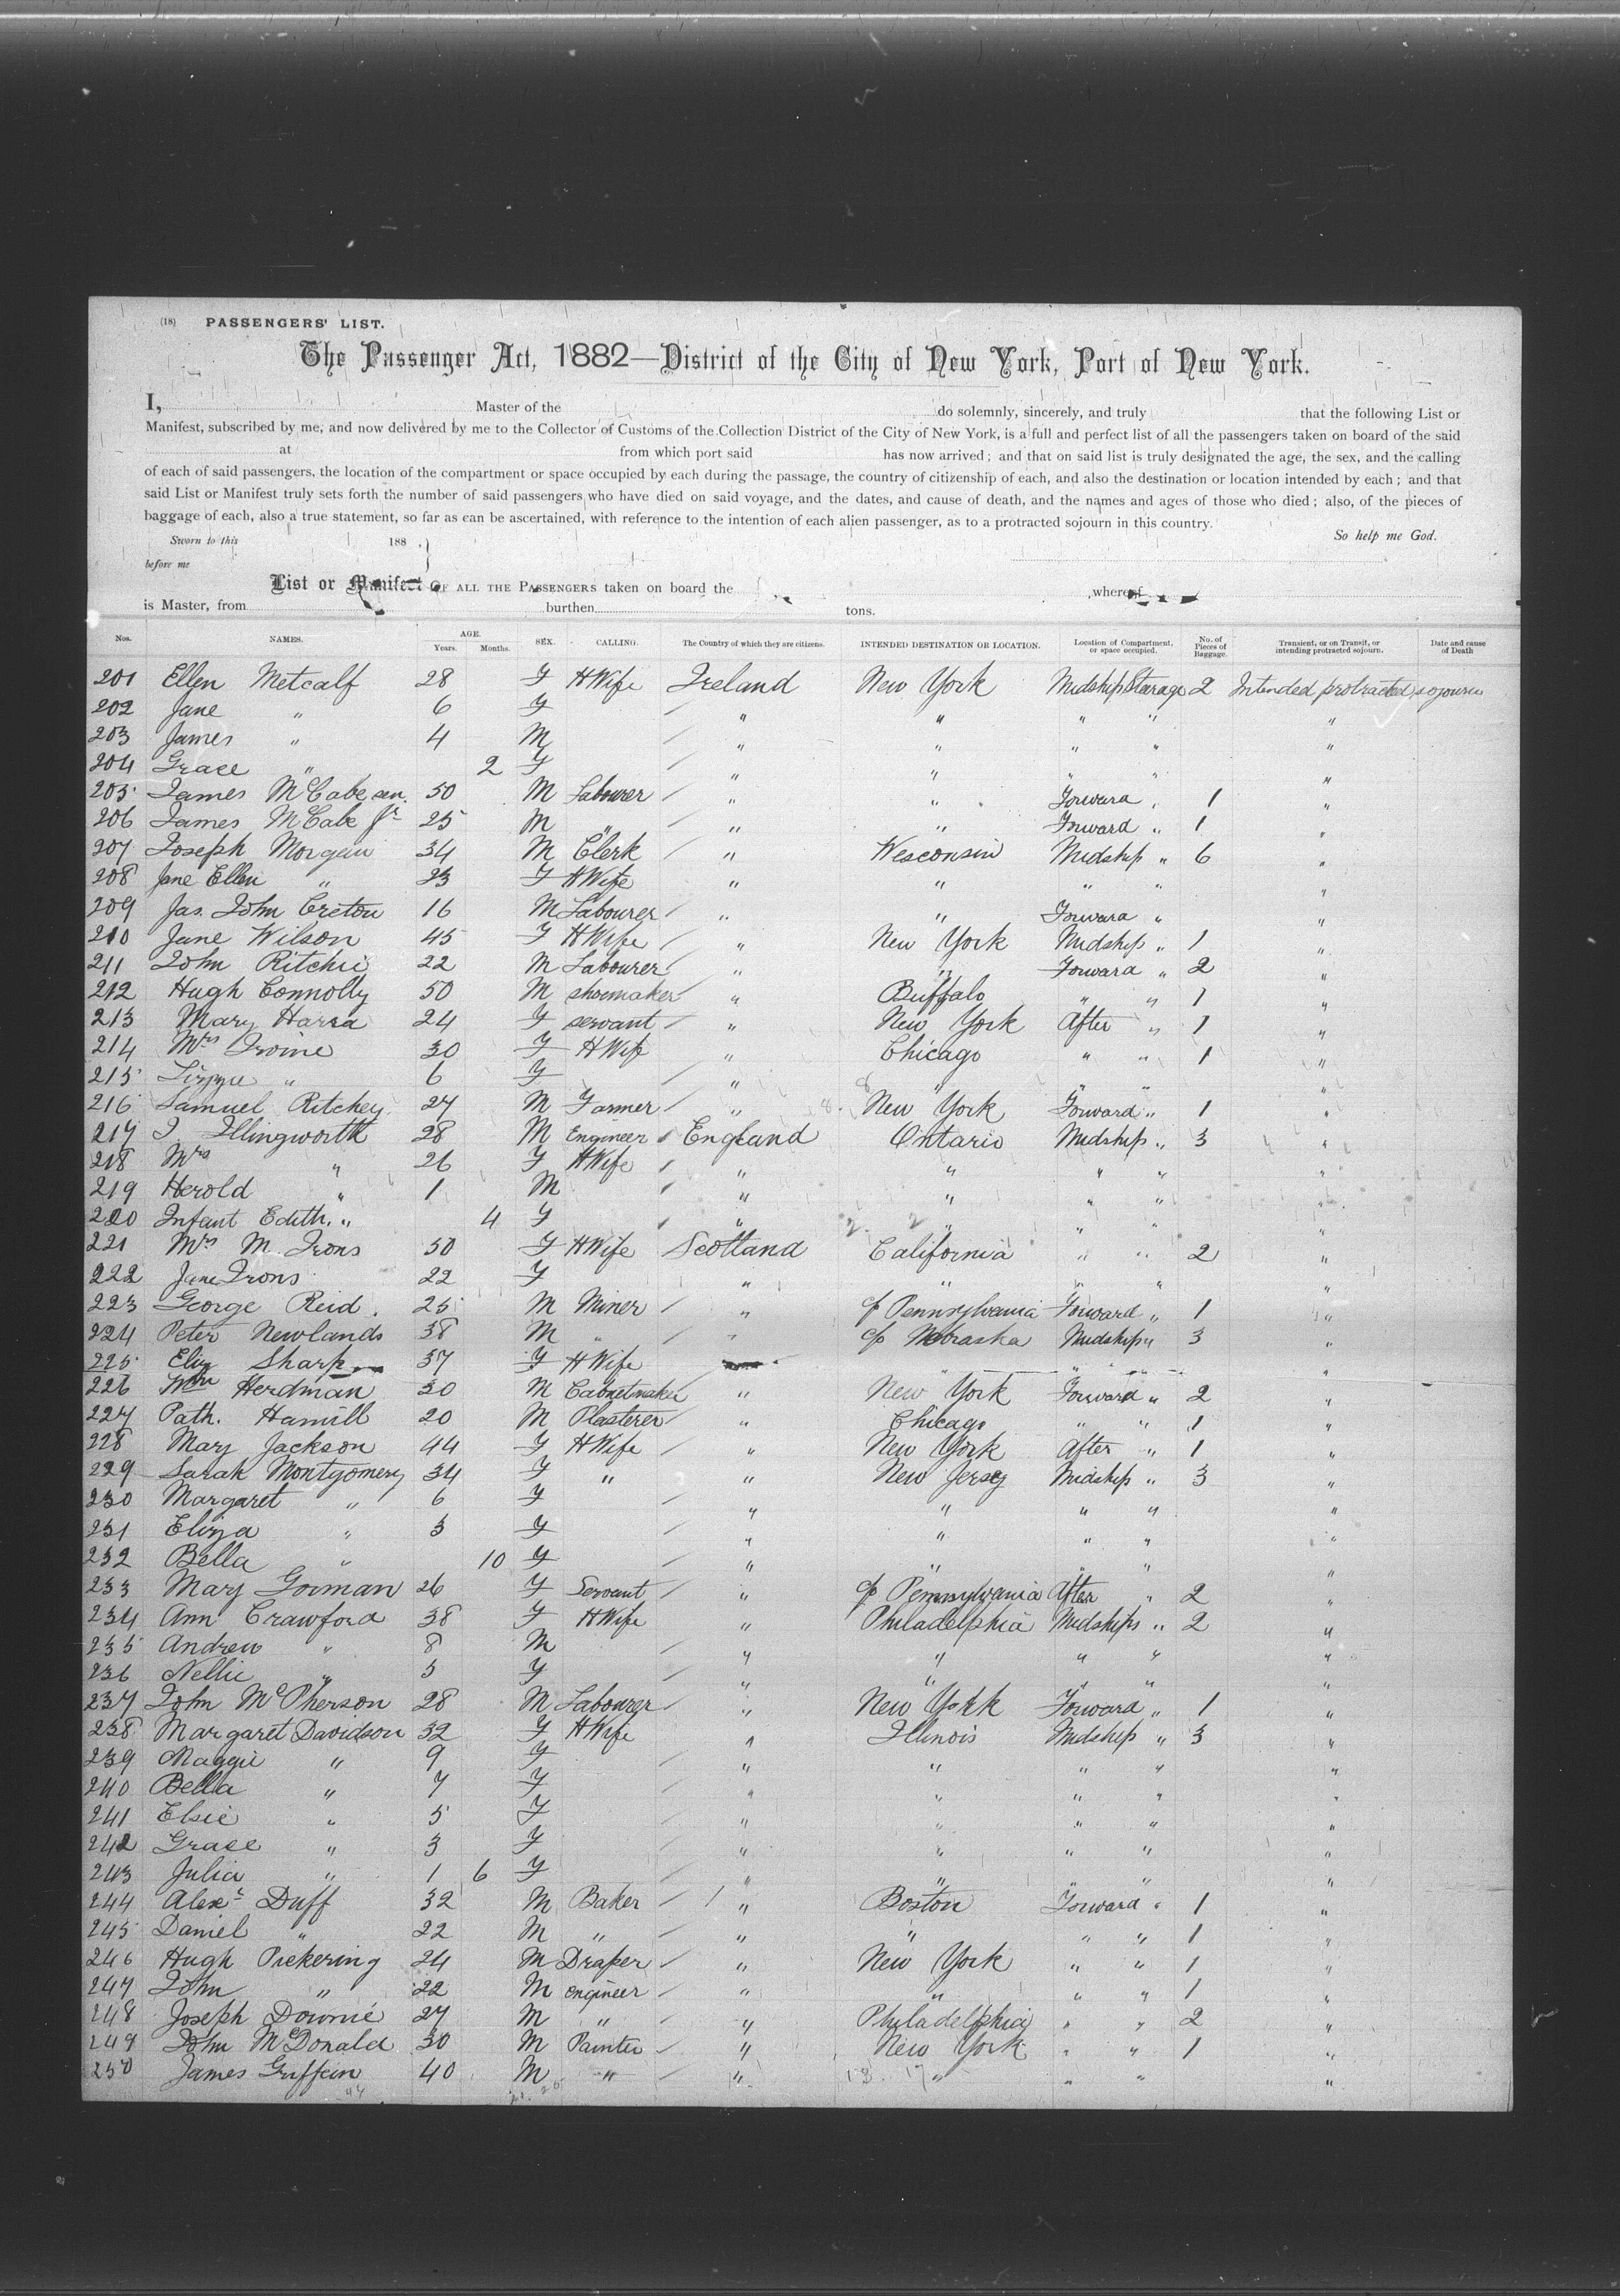 (18) PASSENGERS' LIST.
The Passenger Act, 1882—District of the City of New York, Port of New York.
I, Master of the do solemnly, sincerely, and truly that the following List or
Manifest, subscribed by me, and now delivered by me to the Collector of Customs of the Collection District of the City of New York, is a full and perfect list of all the passengers taken on board of the said
at from which port said has now arrived; and that on said list is truly designated the age, the sex, and the calling
of each of said passengers, the location of the compartment or space occupied by each during the passage, the country of citizenship of each, and also the destination or location intended by each; and that
said List or Manifest truly sets forth the number of said passengers who have died on said voyage, and the dates, and cause of death, and the names and ages of those who died; also, of the pieces of
baggage of each, also a true statement, so far as can be ascertained, with reference to the intention of each alien passenger, as to a protracted sojourn in this country.
Sworn to this 188 So help me God.
before me
List or Manifest OF ALL THE PASSENGERS taken on board the whereof
is Master, from burthen tons.
Nos. NAMES. AGE. Years. Months. SEX. CALLING. The Country of which they are citizens. INTENDED DESTINATION OR LOCATION. Location of Compartment, or space occupied. No. of Pieces of Baggage. Transient, or on Transit, or intending protracted sojourn. Date and cause of Death
201 Ellen Metcalf 28 F H Wife Ireland New York Midship Starage 2 Intended protracted sojourn
202 Jane " 6 F " " " " "
203 James " 4 M " " " " "
204 Grace " 2 F " " " " "
205 James McCabe sen. 50 M Labourer " " Forward " 1 "
206 James McCabe Jr 25 M " " " Forward " 1 "
207 Joseph Morgan 34 M Clerk " Wesconsin Midship " 6 "
208 Jane Ellen " 23 F H Wife " " " " "
209 Jas. John Creton 16 M Labourer " " Forward " "
210 Jane Wilson 45 F H Wife " New York Midship " 1 "
211 John Ritchie 22 M Labourer " " Forward " 2 "
212 Hugh Connolly 50 M shoemaker " Buffalo " " 1 "
213 Mary Harra 24 F servant " New York After " 1 "
214 Mrs Irvine 30 F H Wife " Chicago " " 1 "
215 Lizzie " 6 F " " " " "
216 Samuel Ritchey 27 M Farmer " New York Forward " 1 "
217 J. Illingworth 28 M Engineer England Ontario Midship " 3 "
218 Mrs " 26 F H Wife " " " " "
219 Herold " 1 M " " " " "
220 Infant Edith. " 4 F " " " " "
221 Mrs M Irons 50 F H Wife Scotland California " " 2 "
222 Jane Irons 22 F " " " " "
223 George Reid. 25 M Miner " c/o Pennsylvania Forward " 1 "
224 Peter Newlands 38 M " " c/o Nebraska Midship " 3 "
225 Eliz Sharp 37 F H Wife " " " "
226 Wm Herdman 30 M Cabnetmaker " New York Forward " 2 "
227 Path. Hamill 20 M Plasterer " Chicago " " 1 "
228 Mary Jackson 44 F H Wife " New York After " 1 "
229 Sarah Montgomery 34 F " " New Jersey Midship " 3 "
230 Margaret " 6 F " " " " "
231 Eliza " 3 F " " " " "
232 Bella " 10 F " " " " "
233 Mary Gorman 26 F Servant " c/o Pennsylvania After " 2 "
234 Ann Crawford 38 F H Wife " Philadelphia Midships " 2 "
235 Andrew " 8 M " " " " "
236 Nellie " 5 F " " " " "
237 John McPherson 28 M Labourer " New York Forward " 1 "
238 Margaret Davidson 32 F H Wife " Illinois Midship " 3 "
239 Maggie " 9 F " " " " "
240 Bella " 7 F " " " " "
241 Elsie " 5 F " " " " "
242 Grace " 3 F " " " " "
243 Julia " 1 6 F " " " " "
244 Alexr Duff 32 M Baker " Boston Forward " 1 "
245 Daniel " 22 M " " " " " 1 "
246 Hugh Pickering 24 M Draper " New York " " 1 "
247 John " 22 M engineer " " " " 1 "
248 Joseph Downie 27 M " " Philadelphia " " 2 "
249 John McDonald 30 M Painter " New York " " 1 "
250 James Griffein 40 M " " " " " "